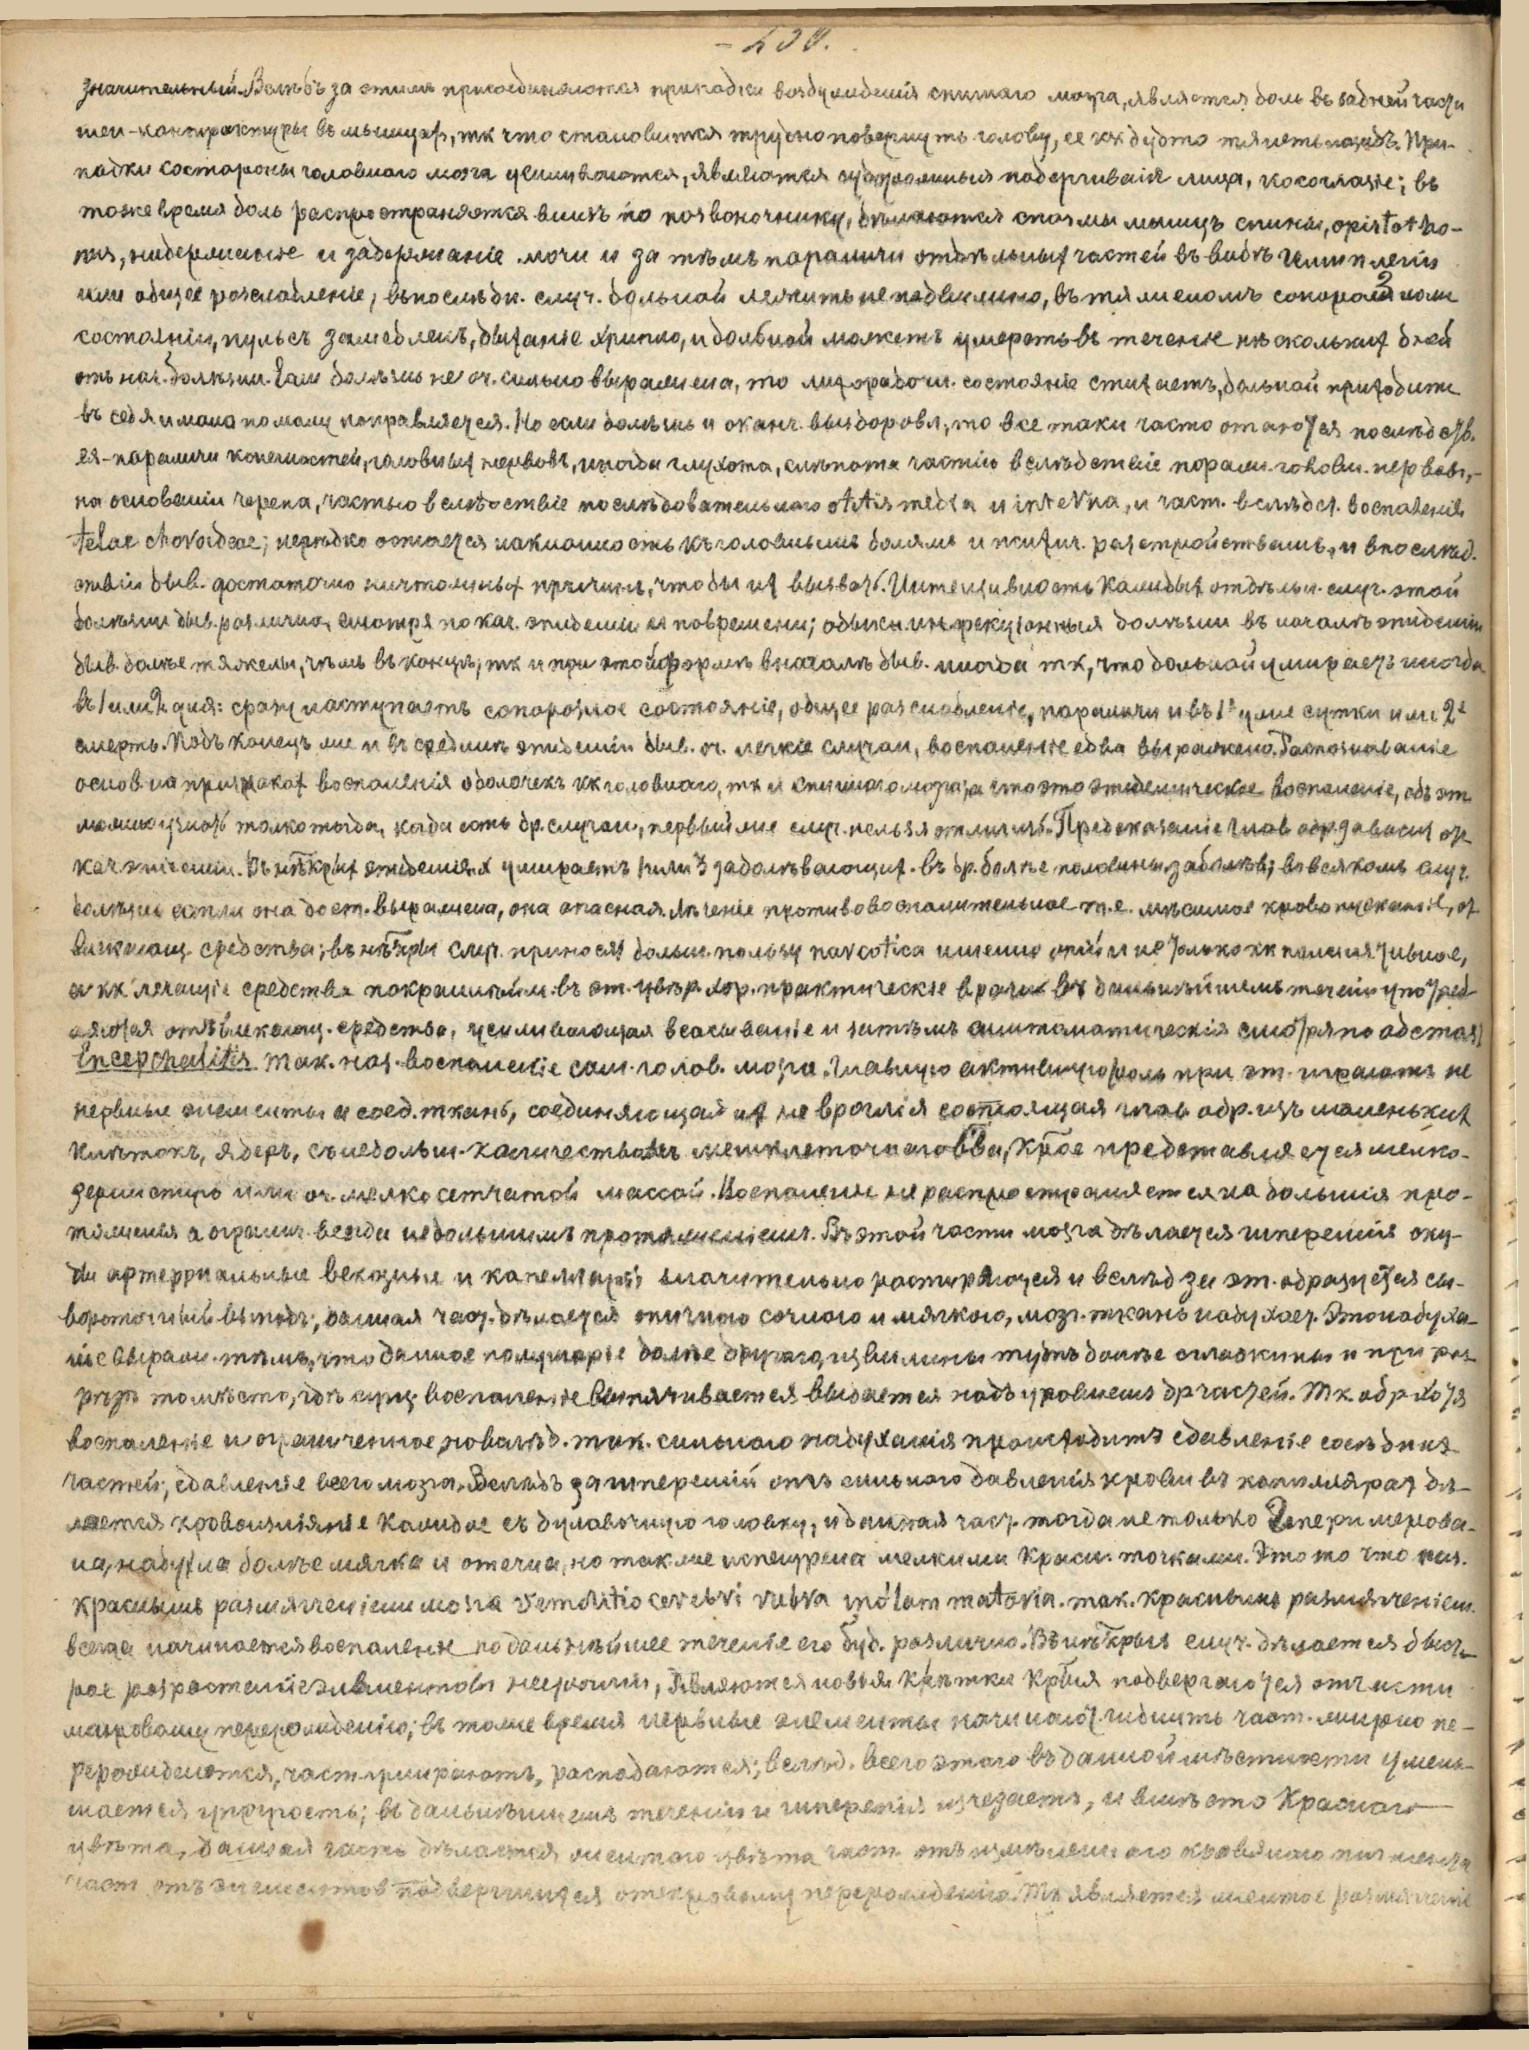 значительный. Вслѣдъ за этимъ присоединяются припадки возбужденія спинаго мозга, является боль въ задней части
шеи - контрактуры въ мышцах, тк что становится трудно повернуть голову, ее кк будто тянетъ назадъ. При-
падки со стороны головнаго мозга усиливаются, являются судорожныя подергиванія лица, косоглазіе; въ
тоже время боль распространяется внизъ по позвоночнику, дѣлаются спазмы мышцъ спины, opistotho-
nus, недержаніе и задержаніе мочи и за тѣмъ параличи отдѣльных частей въ видѣ гемиплегіи
или общее разслабленіе; въ послѣдн. случ. больной лежитъ неподвижно, въ тяжеломъ сопорозном
состояніи, пульсъ замедленъ, дыханіе хрипло, и больной можетъ умереть въ теченіе нѣсколькихъ дней
отъ нач. болѣзни. Если болѣзнь не оч. сильно выражена, то лихорадочн. состояніе стихаетъ, больной приходитъ
въ себя и мало по малу поправляется. Но если болѣзнь и оканч. выздоровл, то все таки часто остаются послѣдств.
ея - параличи конечностей, головных нервовъ, иногда глухота, слѣпота частію вслѣдствіе парали. головн. нервовъ,
на основаніи черепа, частью вслѣдствіе послѣдовательнаго otitis media и interna, и част. вслѣдст. воспаленія
telae choroideae; нерѣдко остается наклонность къ головнымъ болямъ и психич. разстройствамъ, и впослѣд.
ствіи быв. достаточно ничтожных причинъ, чтобы их вызвать. Интензивность каждых отдѣльн. случ. этой
болѣзни быв. различна, смотря по кач. эпидеміи и по времени; обыкн. инфекціонныя болѣзни въ началѣ эпидеміи
быв. болѣе тяжелы, чѣмъ въ концѣ; тк и при этой формѣ вначалѣ быв. иногда тк, что больной умираетъ иногда
въ 1 или 2 дня: сразу наступаетъ сопорозное состояніе, общее разслабленіе, параличи и въ 1е уже сутки или 2е
смерть. Подъ конецъ же и въ срединѣ эпидеміи быв. оч. легкіе случаи, воспаленіе едва выражено. Распознаваніе
основ. на признаках воспаленія оболочекъ кк головнаго, тк и спиннаго мозга, а что это эпидемическое воспаленіе, объ эт.
можно узнать толко тогда, когда есть др. случаи, первый же случ. нельзя отличить. Предсказаніе глав. обр. зависит от
кач. эпидеміи. Въ нѣкрых эпидеміях умираетъ 1/3 заболѣвающих. въ др. болѣе половины заболѣв; во всякомъ случ.
болѣзнь если она дост. выражена, она опасная. Лѣченіе противовоспалительное т.е. мѣстное кровопусканіе, от
влекающ. средства; въ нѣкхры случ. приносят больш. пользу narcotica именно опій и не только кк палліятивное,
а кк лечащіе средства
отвлекающ. средства, усиливающая всасываніе и затѣмъ симтоматическія смотря по обстоят
Encephalitis так. наз. воспаленіе сам. голов. мозга. Главную активную роль при эт. играютъ не
нервные элементы а соед. ткань, соединяющая их невроглія состоящая глав. обр. изъ маленьких
клѣтокъ, ядеръ, съ небольш. количествомъ межклеточнаго в-ва, крое представляется мелко-
зернистую или оч. мелко сетчатой массой. Воспаленіе не распространяется на большія про-
тяженія а огранич. всегда небольшимъ протяженіемъ. Въ этой части мозга дѣлается гиперемія сосу-
ды артеріальные венозные и капелляры значительно расширяются и вслѣд за эт. образуется сы-
вороточный выпотъ, данная част. дѣлается отечною сочною и мягкою, мозг. ткань набухает. Это набуха-
ніе выраж. тѣмъ, что данное полушаріе болѣе другаго, извилины тутъ болѣе сглажены и при раз
рѣзѣ то мѣсто, гдѣ сущ. воспаленіе выпячивается выдается надъ уровнемъ др частей. Тк. обр хотя
воспаленіе и ограниченное, но вслѣд. так. сильнаго набуханія происходитъ сдавленіе сосѣдних
частей, сдавленіе всего мозга. Вслѣдъ за гиперемій отъ сильнаго давленія крови въ капиллярах дѣ-
лается кровоизліяніе каждое съ булавочную головку, и данная част. тогда не только гиперимирова-
на, набухла болѣе мягка и отечна, но также испещрена мелкими красн. точками. Это то что наз.
краснымъ размягченіемъ мозга remolitio cerebri rubra inflammatoria. так. краснымъ размягченіем.
всегда начинается воспаленіе но дальнѣйшее теченіе его буд. различно. Въ нѣкрыхъ случ. дѣлается быст-
рое разростаніе элементовъ невроглии, являются новыя клѣтки крыя подвергаются отчасти
жировому перерожденію; въ тоже время нервные элементы начинают гибнуть част. жирно пе-
рерождаются, част умираютъ, распадаются; вслѣд. всего этого въ данной мѣстности умень-
шается упругость; въ дальнѣйшемъ теченіи и гиперемія исчезаетъ, и вмѣсто краснаго
цвѣта, данная часть дѣлается желтаго цвѣта част. отъ измѣненнаго кровянаго пигмента
част отъ элементов подвергшихся жировому перерожденію. Тк является желтое размягченіе